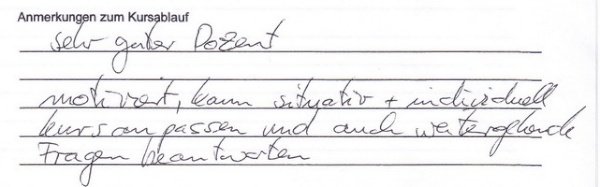 Anmerkungen zum Kursablauf
sehr guter Dozent
motiviert, kann situativ + individuell
kurs anpassen und auch weitergehende
Fragen beantworten